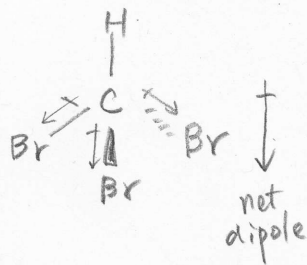 H
C
Br
Br
Br
net
dipole